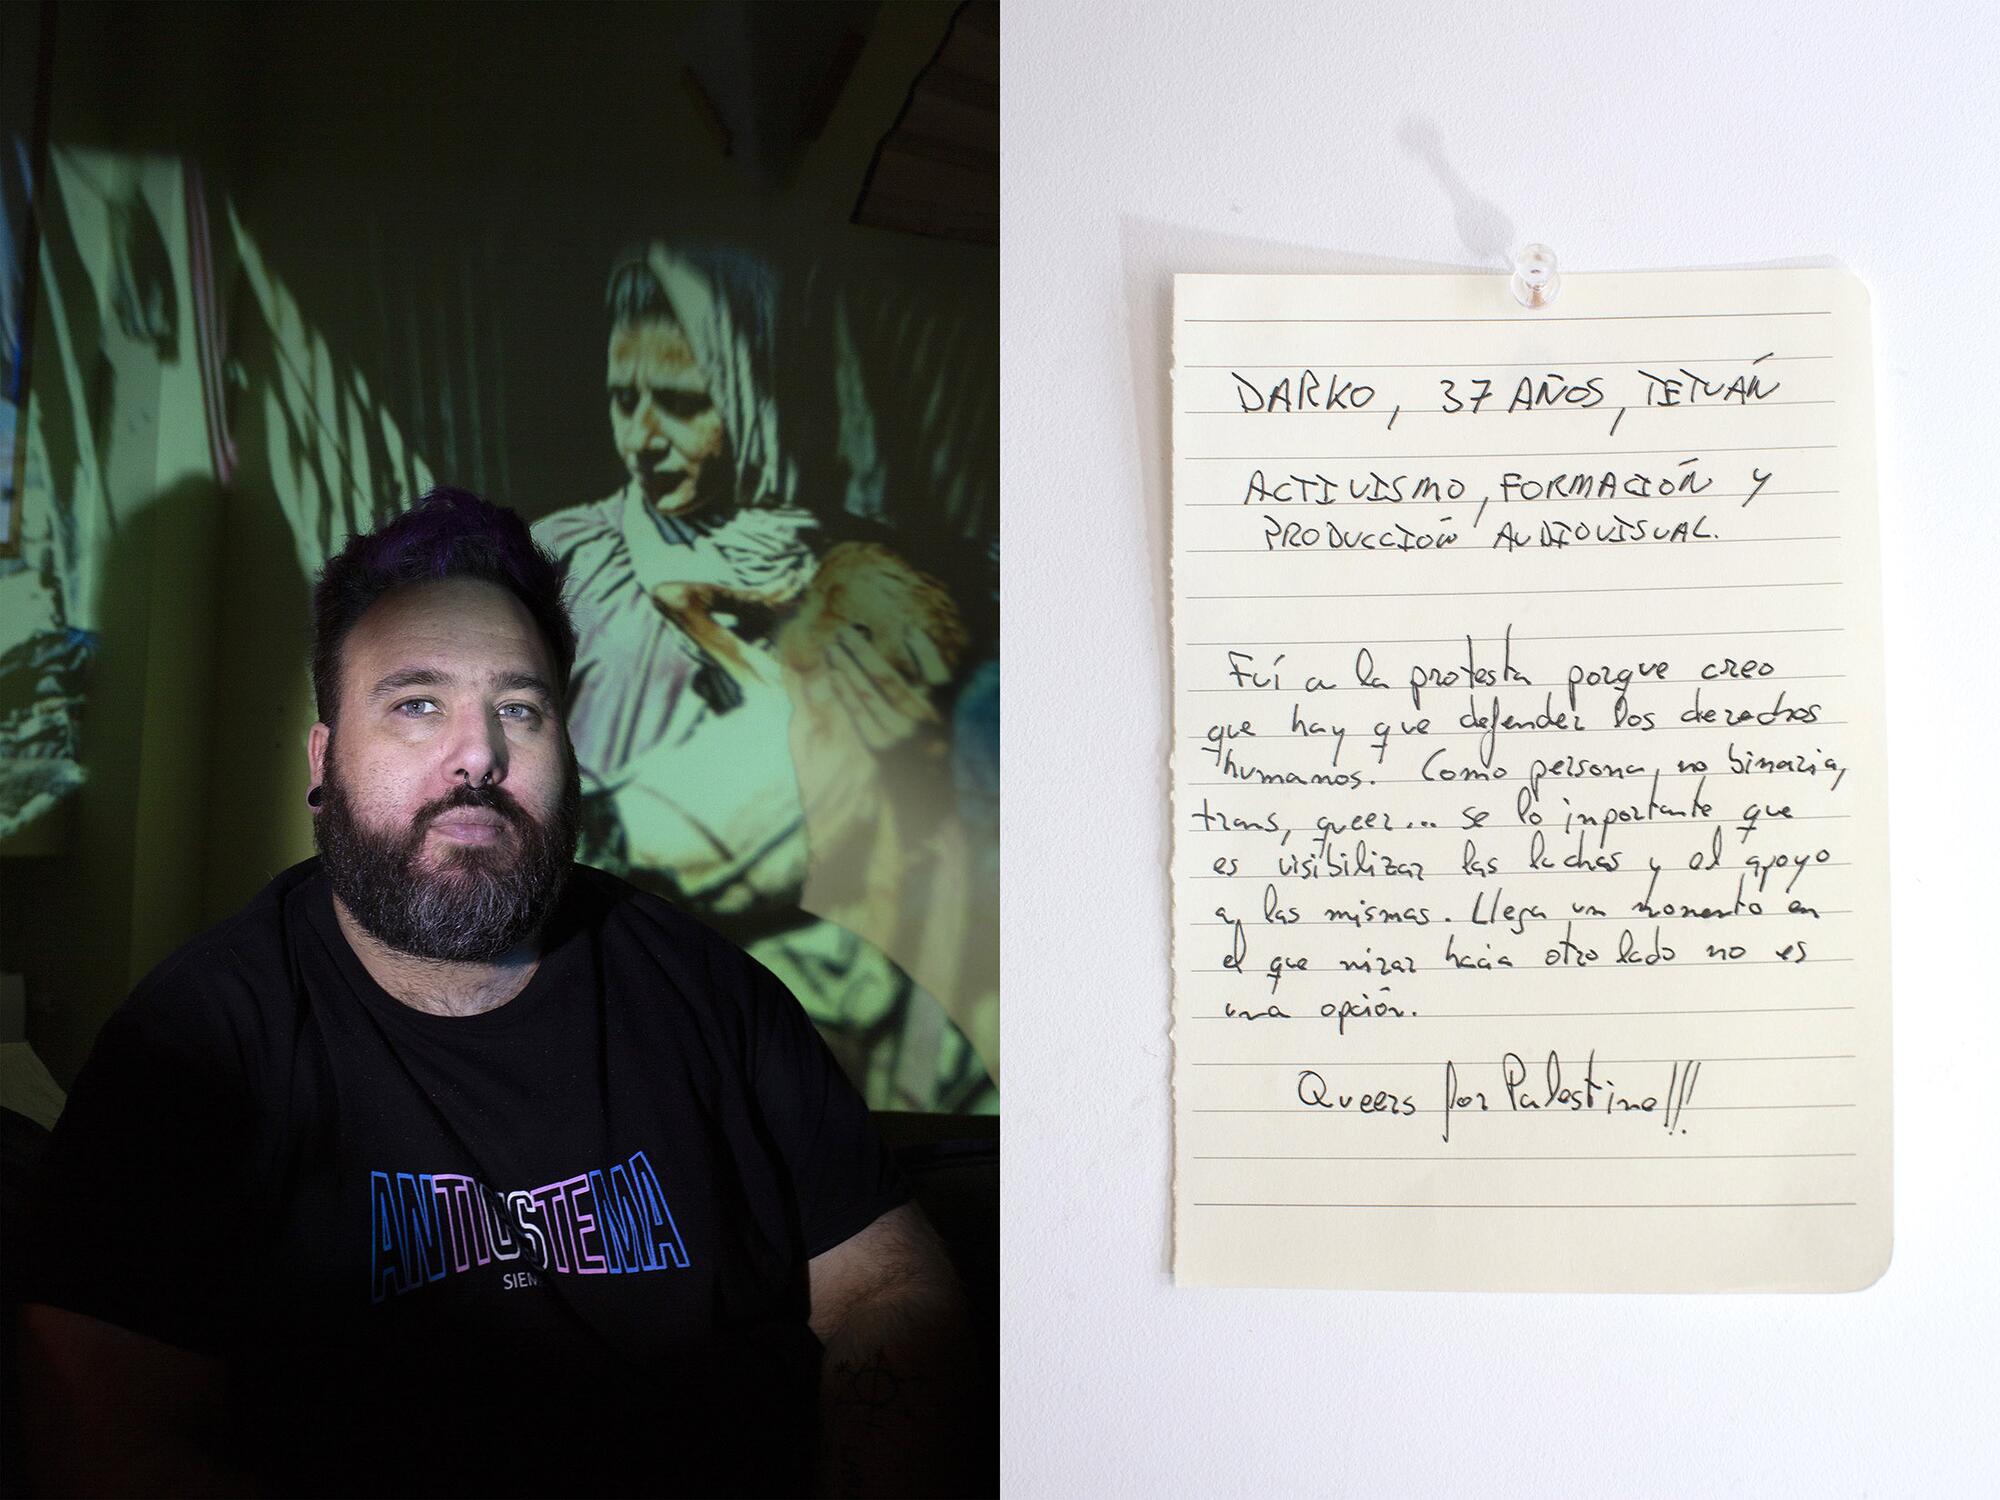 ANTISISTEMA
SIEM
DARKO, 37 AÑOS, TETUÁN
ACTIVISMO, FORMACIÓN Y
PRODUCCIÓN AUDIOVISUAL.
Fuí a la protesta porque creo
que hay que defender los derechos
humanos. Como persona, no binaria,
trans, queer... se lo importante que
es visibilizar las luchas y el apoyo
a las mismas. Llega un momento en
el que mirar hacia otro lado no es
una opción.
Queers for Palestine!!!